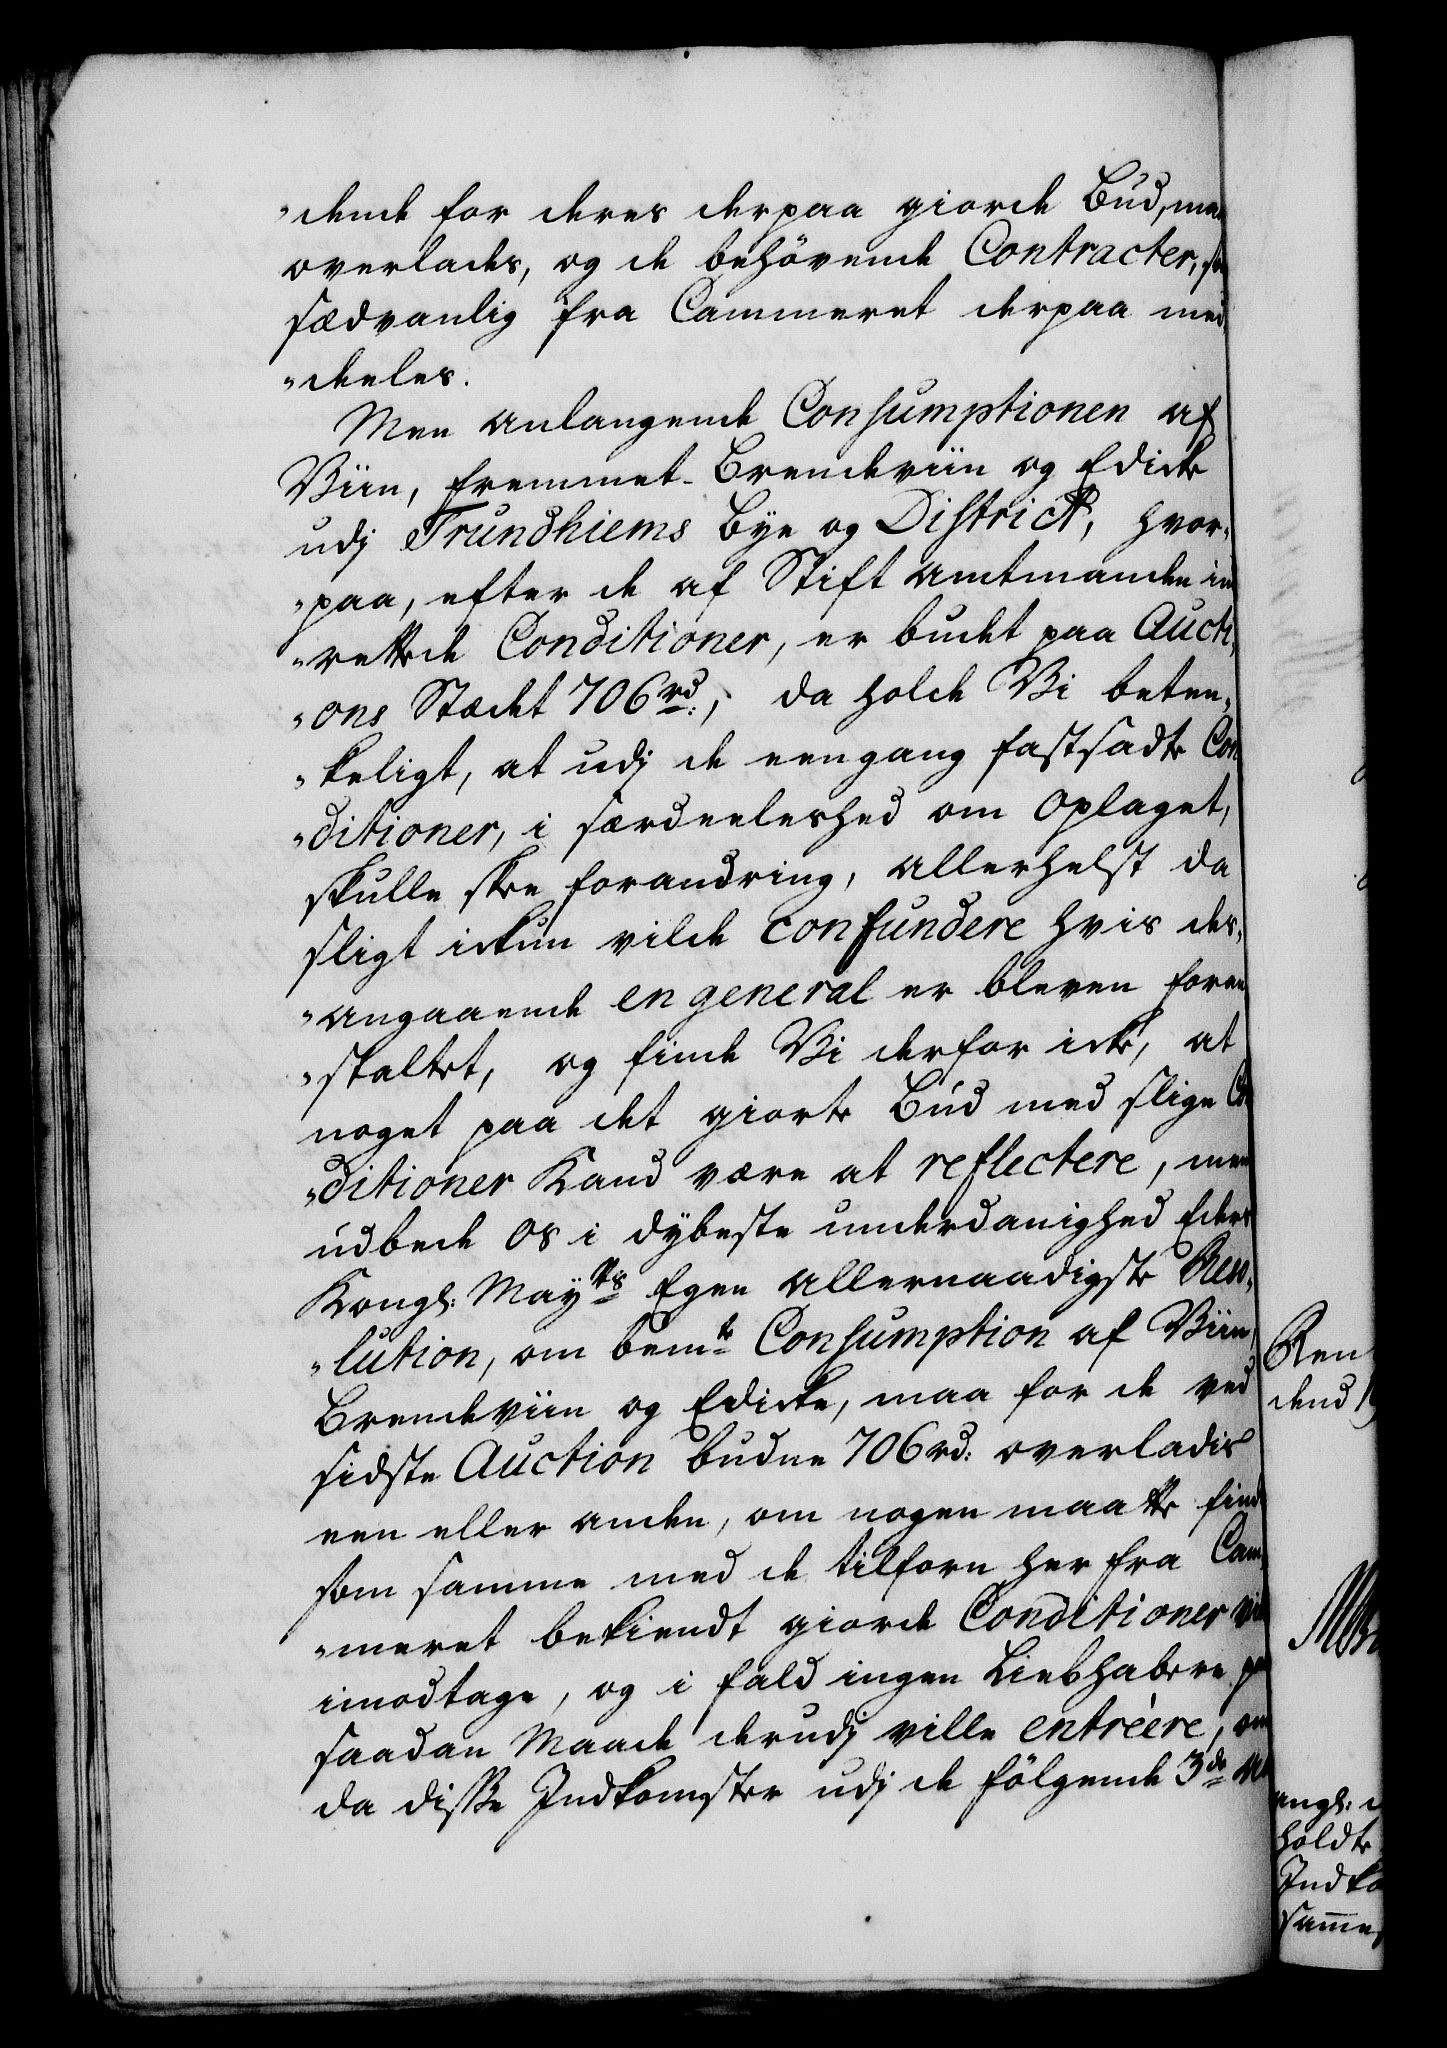 "dende for deres derpaa giorde Bud, maa
overlades, og de behövende Contracter, som
sædvanlig fra Cammeret derpaa med
"deeles.
Men anlangende Consumptionen af
Viin, fremmet Brendeviin og Edicke
udj Trundhiems Bye og District, hvor-
"paa, efter de af Stift Amtmanden ind
"rettede Conditioner, er budet paa Aucti,
"ons Stædet 706 rd:, da holde Vi beten,
"keligt, at udj de eengang fastsadte Con
"ditioner, i særdeeleshed om Oplaget,
skulle skee forandring, allerhelst da
sligt ickun vilde confundere hvis des,
"angaaende en general er bleven foran
"staltet, og finde Vi derfor icke, at
noget paa det giorte Bud med slige Con
"ditioner Kand være at reflectere, men
udbede os i dybeste underdanighed Eders
Kongl: Mayts Egen allernaadigste Reso,
"lution, om bemte Consumption af Viin,
Brendeviin og Edicke, maa for de ved
sidste Auction budne 706 rd: overladis
een eller anden, om nogen maatte findes
som samme med de tilforn her fra Cam,
"meret bekiendt giorde Conditioner vil
imodtage, og i fald ingen Liebhabere paa
saadan Maade derudj ville entréere, om
da disse Indkomster udj de fölgende 3de
Ren
dend
ongl:
holdte
Indko
samme